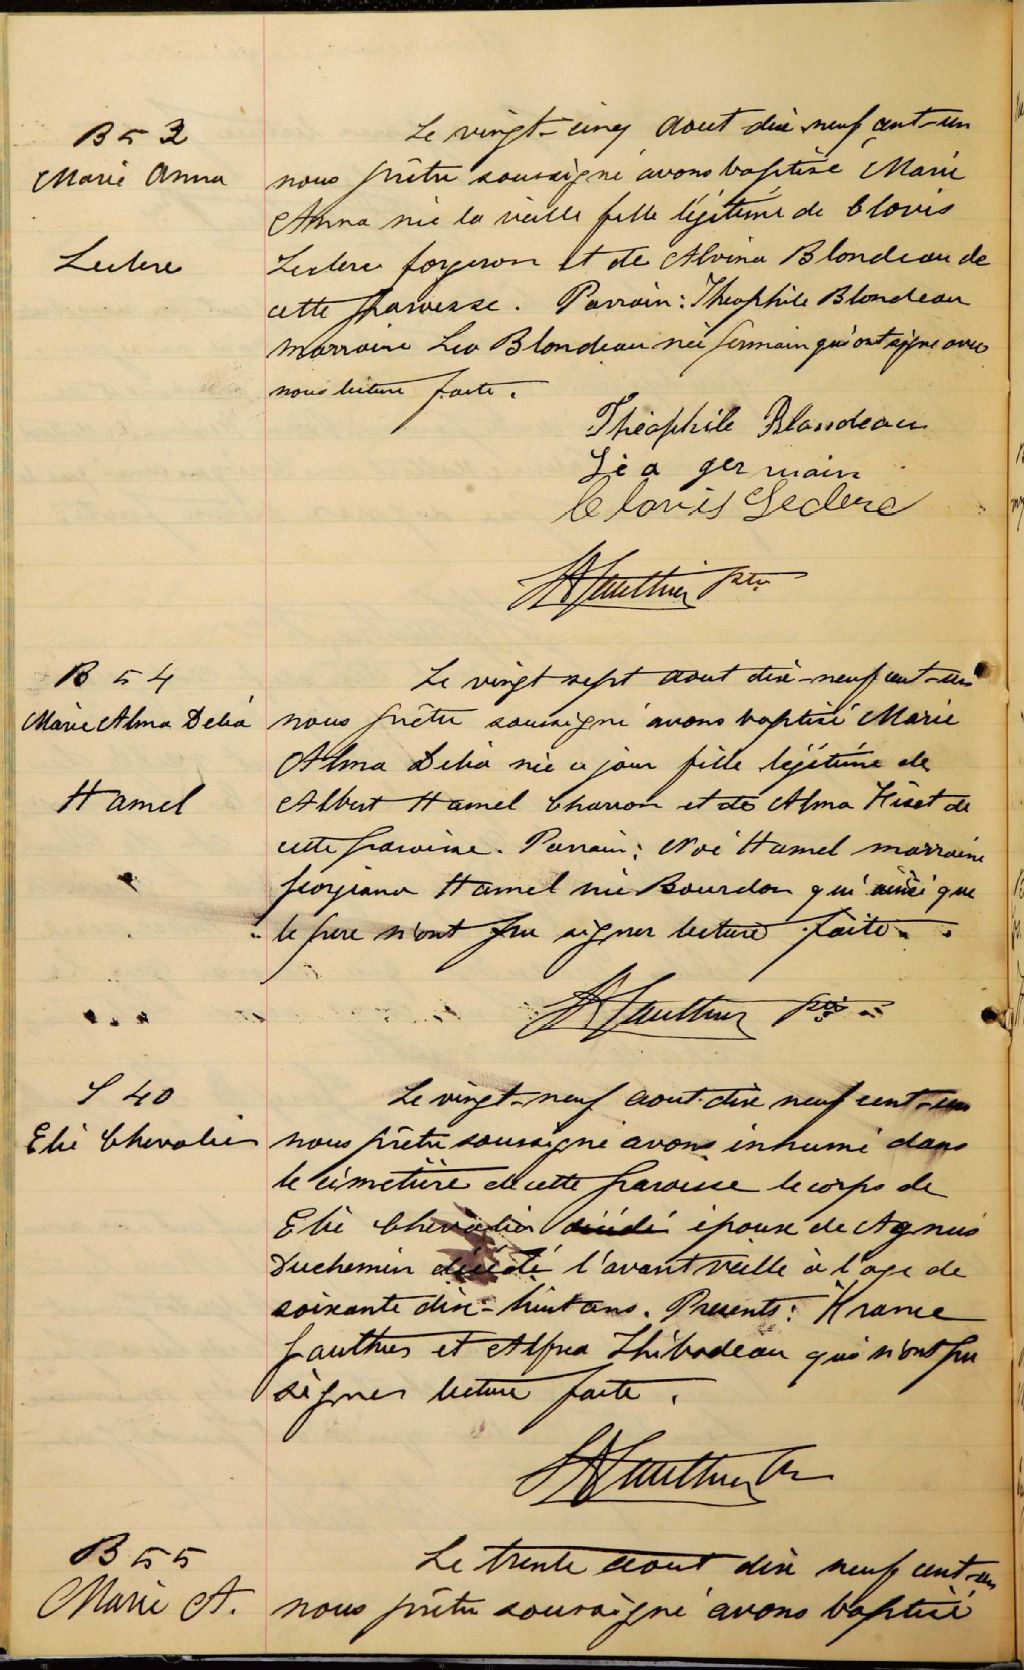 B 53
Marie Anna
Leclerc
Le vingt-cinq aout dix neuf cent-un
nous prêtre soussigné avons baptisé Marie
Anna née la veille fille légitime de Clovis
Leclerc forgeron et de Alvina Blondeau de
cette paroisse. Parrain: Théophile Blondeau
marraine Lea Blondeau née Germain qui ont signé avec
nous lecture faite.
Théophile Blandeau
Léa germain
Clovis Leclerc
Gauthier ptre
B 54
Marie Alma Delia
Hamel
Le vingt sept aout dix-neuf cent-un
nous prêtre soussigné avons baptisé Marie
Alma Delia née ce jour fille légitime de
Albert Hamel charron et de Alma de
cette paroisse. Parrain: Noé Hamel marraine
Georgiana Hamel née Bourdon qui ainsi que
le père n'ont pu signer lecture faite.
Gauthier ptre
S 40
Elie Chevalier
Le vingt-neuf aout dix neuf cent-un
nous prêtre soussigné avons inhumé dans
le cimetière de cette paroisse le corps de
Elie Chevalier décédé époux de Agnès
Duchemin décédé l'avant veille à l'age de
soixante dix-huit ans. Presents:
Gauthier et Thibodeau qui n'ont pu
signer lecture faite.
Gauthier
B 55
Marie A.
Le trente aout dix neuf cent-un
nous prêtre soussigné avons baptisé